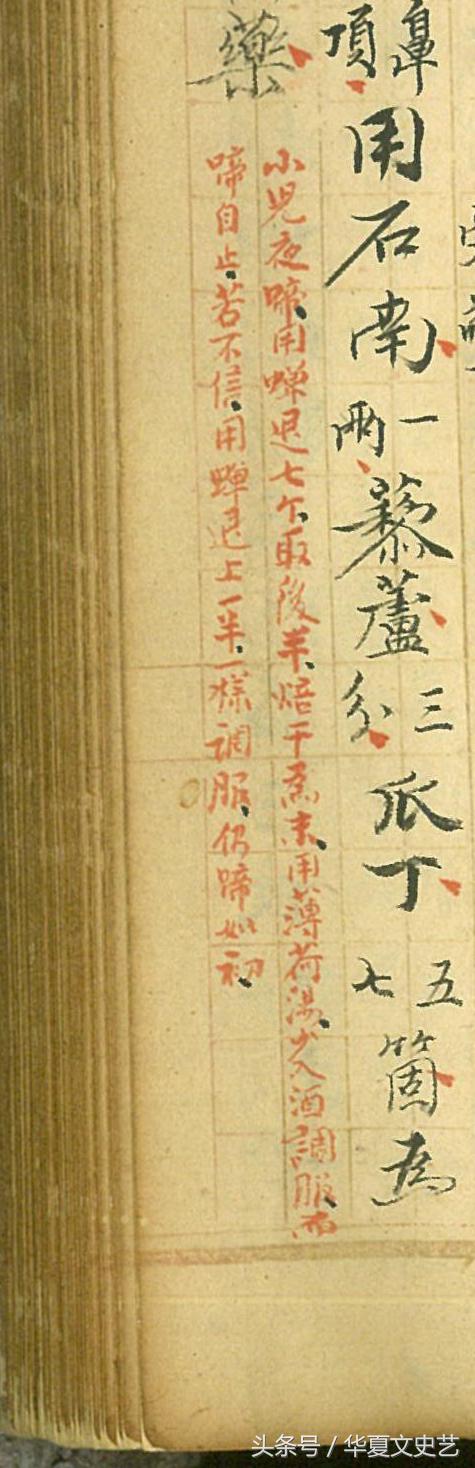 鼻項用石南一兩藜蘆三分瓜丁五七箇為
藥
小児夜啼、用蝉退七个、取後半、焙干為末、用薄荷湯、少入酒調服、而
啼自止、若不信、用蝉退上一半、一樣調服、仍啼如初、
头条号 / 华夏文史艺